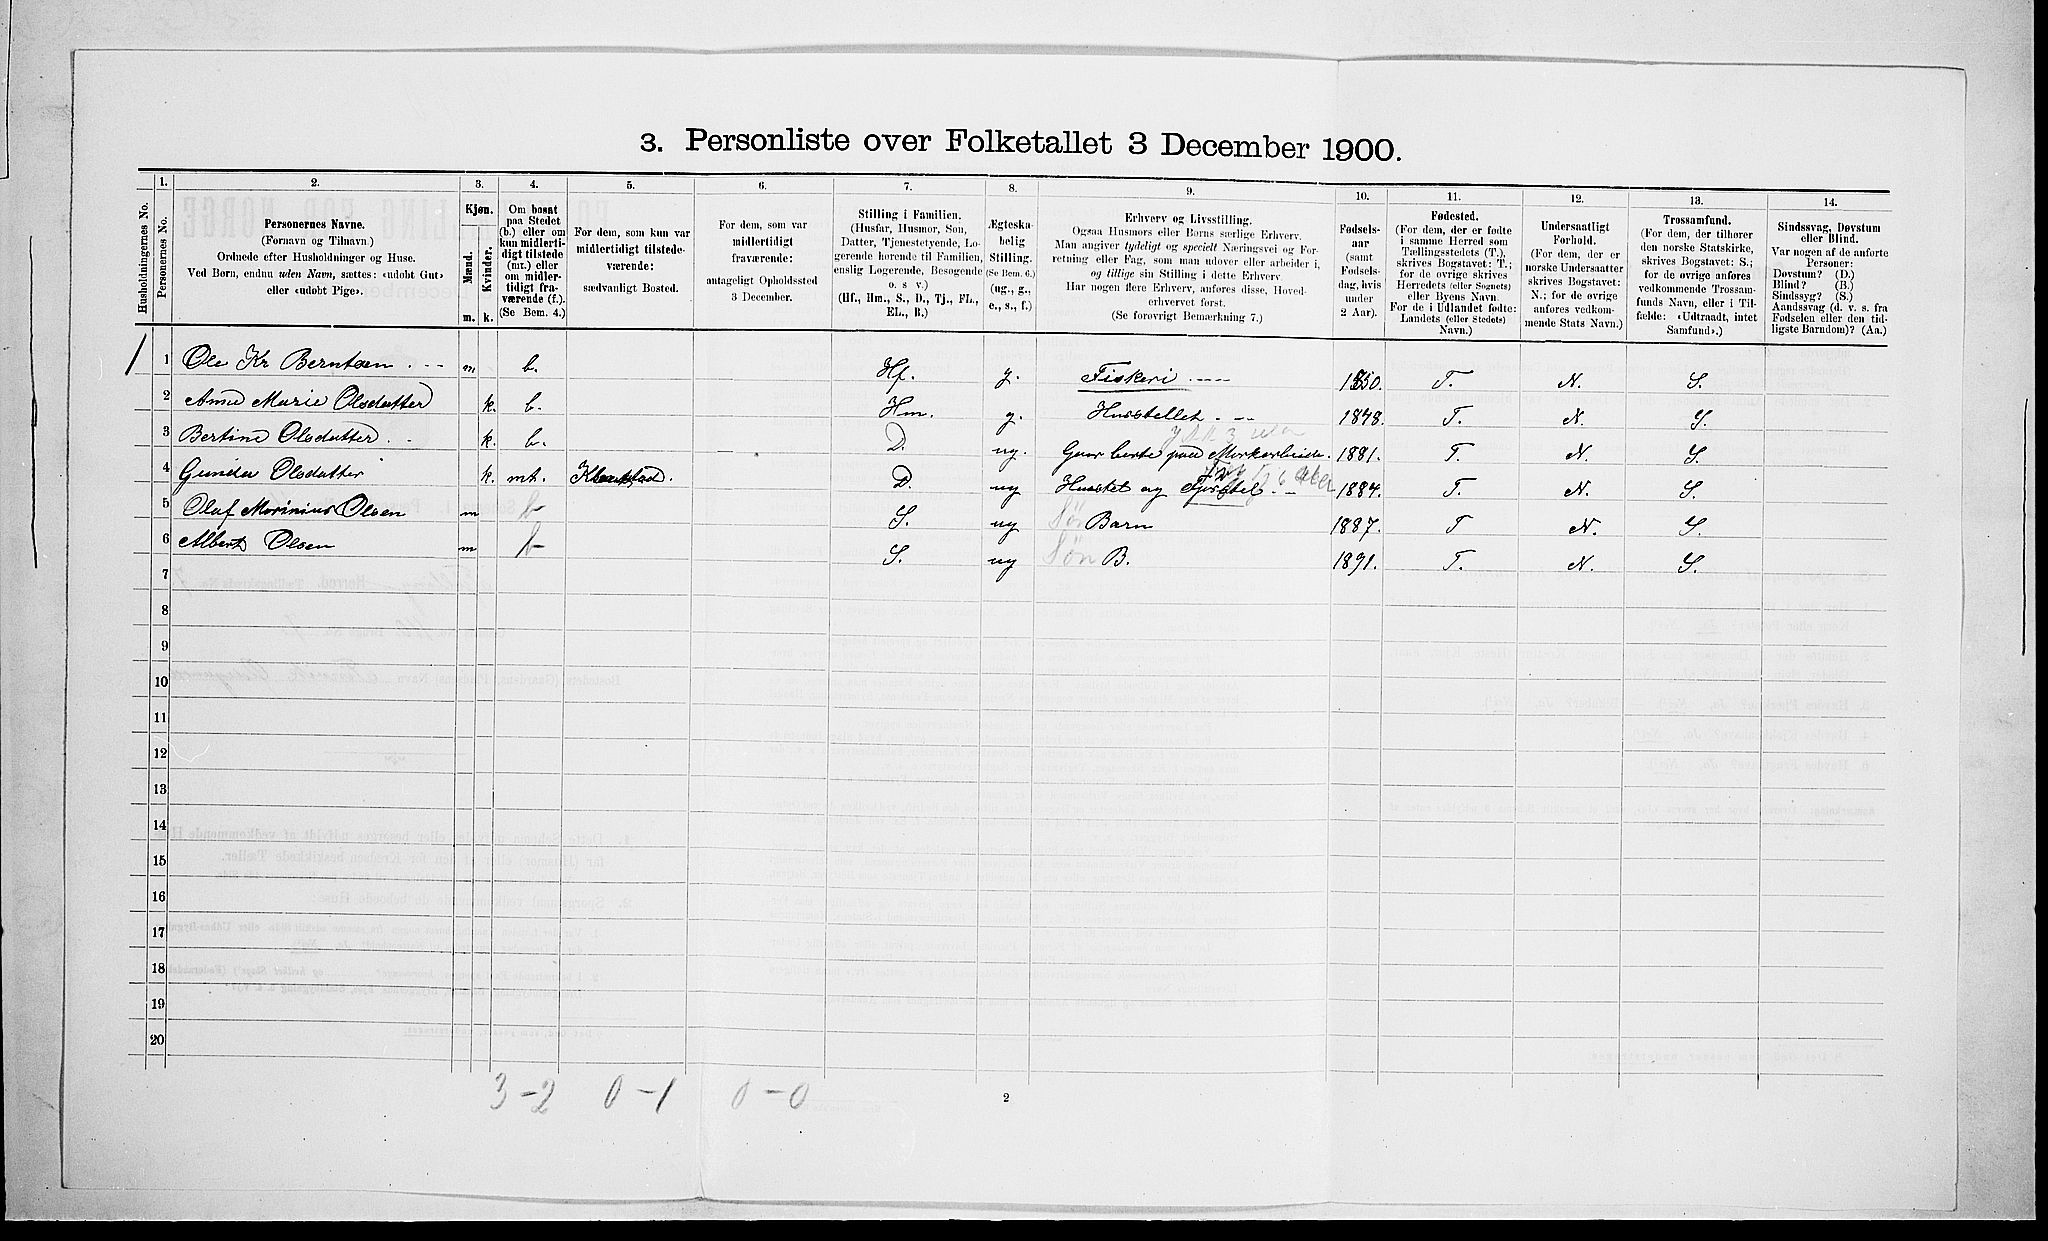 3. Personliste over Folketallet 3 December 1900.
Husholdningernes No.
1. Personernes No.
2. Personernes Navne.
(Fornavn og Tilnavn.)
Ordnede efter Husholdninger og Huse.
Ved Børn, endnu uden Navn, sættes: «udøbt Gut»
eller «udøbt Pige».
3. Kjøn.
Mænd. Kvinder.
m. k.
4. Om bosat
paa Stedet
(b.) eller om
kun midlerti-
digt tilstede
(mt.) eller
om midler-
tidigt fra-
værende (f.).
(Se Bem. 4.)
5. For dem, som kun var
midlertidigt tilstede-
værende:
sædvanligt Bosted.
6. For dem, som var
midlertidigt
fraværende:
antageligt Opholdssted
3 December.
7. Stilling i Familien.
(Husfar, Husmor, Søn,
Datter, Tjenestetyende, Lo-
gerende hørende til Familien,
enslig Logerende, Besøgende
o. s v.)
(Hf., Hm., S., D., Tj., FL.,
EL., B.)
8. Ægteska-
belig
Stilling.
(Se Bem. 6.)
(ug., g.,
e., s., f.)
9. Erhverv og Livsstilling.
Ogsaa Husmors eller Børns særlige Erhverv.
Man angiver tydeligt og specielt Næringsvei og For-
retning eller Fag, som man udøver eller arbeider i,
og tillige sin Stilling i dette Erhverv.
Har nogen flere Erhverv, anføres disse, Hoved-
erhvervet først.
(Se forøvrigt Bemærkning 7.)
10. Fødsels-
aar
(samt
Fødsels-
dag, hvis
under
2 Aar).
11. Fødested.
(For dem, der er fødte
i samme Herred som
Tællingsstedets (T.),
skrives Bogstavet: T.;
for de øvrige skrives
Herredets (eller Sognets)
eller Byens Navn.
For de i Udlandet fødte:
Landets (eller Stedets)
Navn.)
12. Undersaatligt
Forhold.
(For dem, der er
norske Undersaatter
skrives Bogstavet:
N.; for de øvrige
anføres vedkom-
mende Stats Navn.)
13. Trossamfund.
(For dem, der tilhører
den norske Statskirke,
skrives Bogstavet: S.;
for de øvrige anføres
vedkommende Trossam-
funds Navn, eller i Til-
fælde: «Udtraadt, intet
Samfund».)
14. Sindssvag, Døvstum
eller Blind.
Var nogen af de anførte
Personer:
Døvstum? (D.)
Blind? (B.)
Sindssyg? (S.)
Aandssvag (d. v. s. fra
Fødselen eller den tid-
ligste Barndom)? (Aa.)
1 Ole Kr Berntsen m b. Hf. g. Fiskeri 1850. T. N. S.
2 Anne Marie Olsdatter k. b. Hm. g. Husstellet 1848. T. N. S.
3 Bertine Olsdatter k. b. D. ug. 1881. T. N. S.
4 Gunda Olsdatter k. mt. D. ug Husstel og Fjøsstel 1884. T. N. S.
5 Olaf Marinius Olsen m b S. ug Søn Barn 1887. T N. S.
6 Albert Olsen m b S. ug Søn B. 1891. T. N. S.
7
8
9
10
11
12
13
14
15
16
17
18
19
20
3-2 0-1 0-0
2